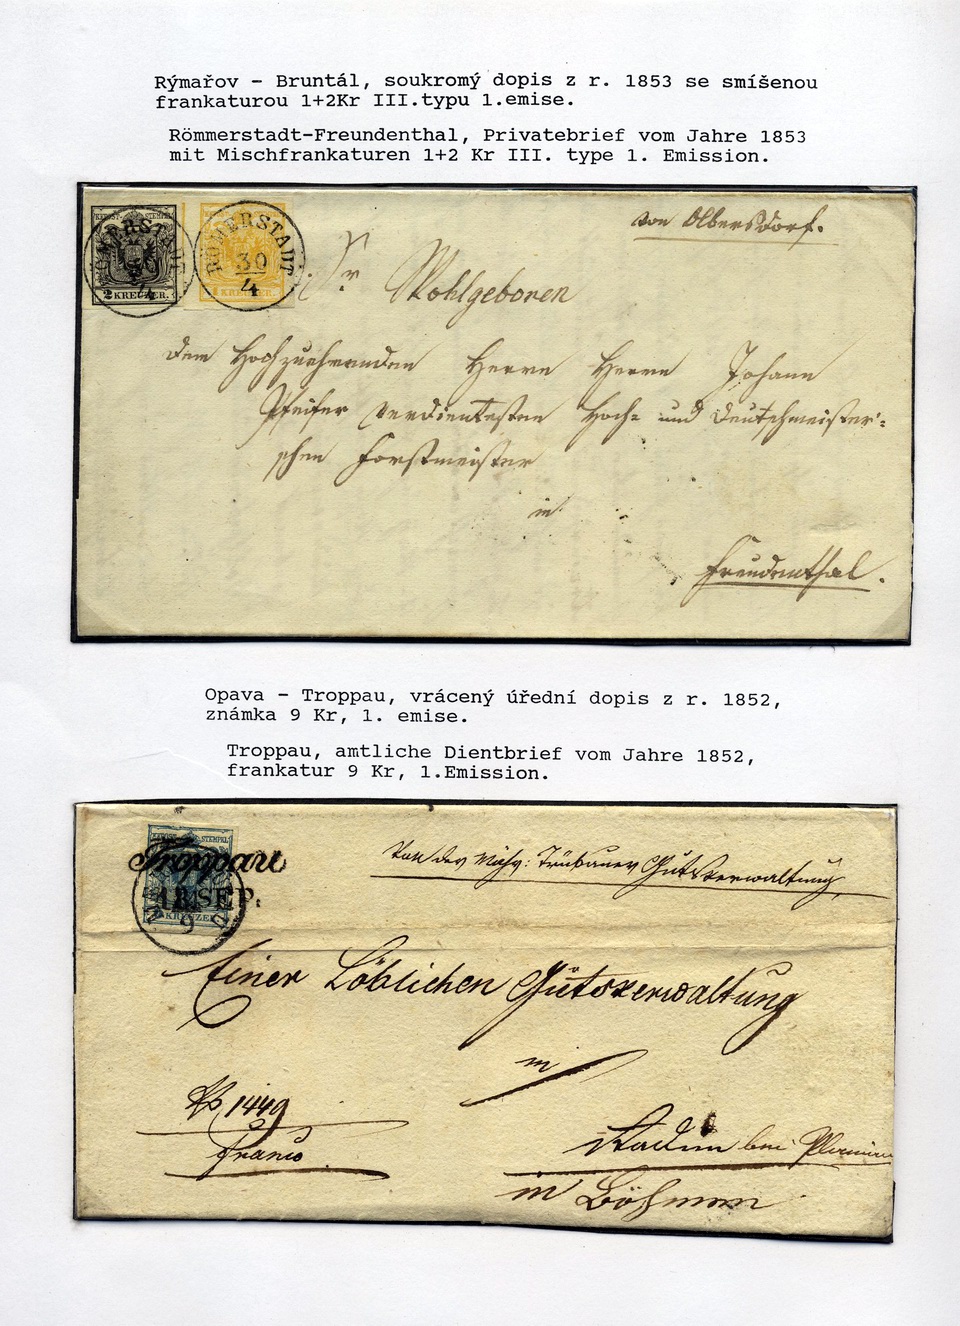 Rýmařov - Bruntál, soukromý dopis z r. 1853 se smíšenou
frankaturou 1+2Kr III.typu 1.emise.
Römmerstadt-Freundenthal, Privatebrief vom Jahre 1853
mit Mischfrankaturen 1+2 Kr III. type 1. Emission.
2 KREUZER.
RÖMERSTADT
30
4
1 KREUZER.
von Olbersdorf.
Sr Wohlgeboren
dem Hochzuehrenden Herrn Herrn Johann
Pfeifer verdientesten Hoch= und Deutschmeister=
schen Forstmeister
in
Freudenthal.
Opava - Troppau, vrácený úřední dopis z r. 1852,
známka 9 Kr, 1. emise.
Troppau, amtliche Dientbrief vom Jahre 1852,
frankatur 9 Kr, 1.Emission.
STEMPEL
Troppau
18 SEP.
KREUZER
9
Von der Mähr: Trübauer Gutsverwaltung
Einer Löblichen Gutsverwaltung
in
1449
Franco
bei
in Böhmen